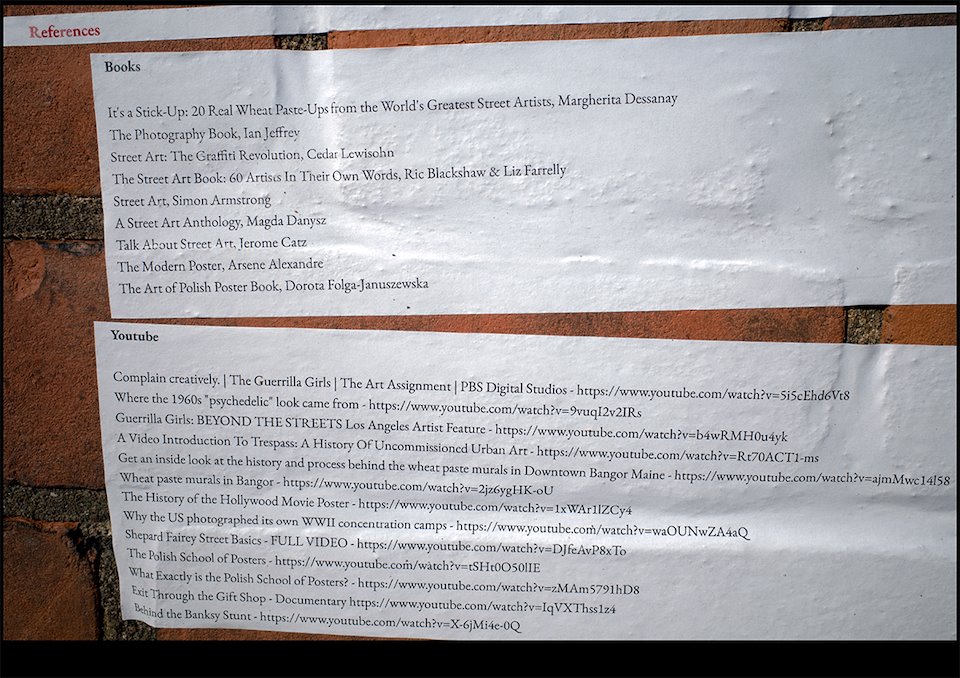 References
Books
It's a Stick-Up: 20 Real Wheat Paste-Ups from the World's Greatest Street Artists, Margherita Dessanay
The Photography Book, Ian Jeffrey
Street Art: The Graffiti Revolution, Cedar Lewisohn
The Street Art Book: 60 Artists In Their Own Words, Ric Blackshaw & Liz Farrelly
Street Art, Simon Armstrong
A Street Art Anthology, Magda Danysz
Talk About Street Art, Jerome Catz
The Modern Poster, Arsene Alexandre
The Art of Polish Poster Book, Dorota Folga-Januszewska
Youtube
Complain creatively. | The Guerrilla Girls | The Art Assignment | PBS Digital Studios - https://www.youtube.com/watch?v=5i5cEhd6Vt8
Where the 1960s "psychedelic" look came from - https://www.youtube.com/watch?v=9vuqI2v2IRs
Guerrilla Girls: BEYOND THE STREETS Los Angeles Artist Feature - https://www.youtube.com/watch?v=b4wRMH0u4yk
A Video Introduction To Trespass: A History Of Uncommissioned Urban Art - https://www.youtube.com/watch?v=Rt70ACT1-ms
Get an inside look at the history and process behind the wheat paste murals in Downtown Bangor Maine - https://www.youtube.com/watch?v=ajmMwc14l58
Wheat paste murals in Bangor - https://www.youtube.com/watch?v=2jz6ygHK-oU
The History of the Hollywood Movie Poster - https://www.youtube.com/watch?v=1xWAr1lZCy4
Why the US photographed its own WWII concentration camps - https://www.youtube.com/watch?v=waOUNwZA4aQ
Shepard Fairey Street Basics - FULL VIDEO - https://www.youtube.com/watch?v=DJfeAvP8xTo
The Polish School of Posters - https://www.youtube.com/watch?v=tSHt0O50lIE
What Exactly is the Polish School of Posters? - https://www.youtube.com/watch?v=zMAm5791hD8
Exit Through the Gift Shop - Documentary https://www.youtube.com/watch?v=IqVXThss1z4
Behind the Banksy Stunt - https://www.youtube.com/watch?v=X-6jMi4e-0Q